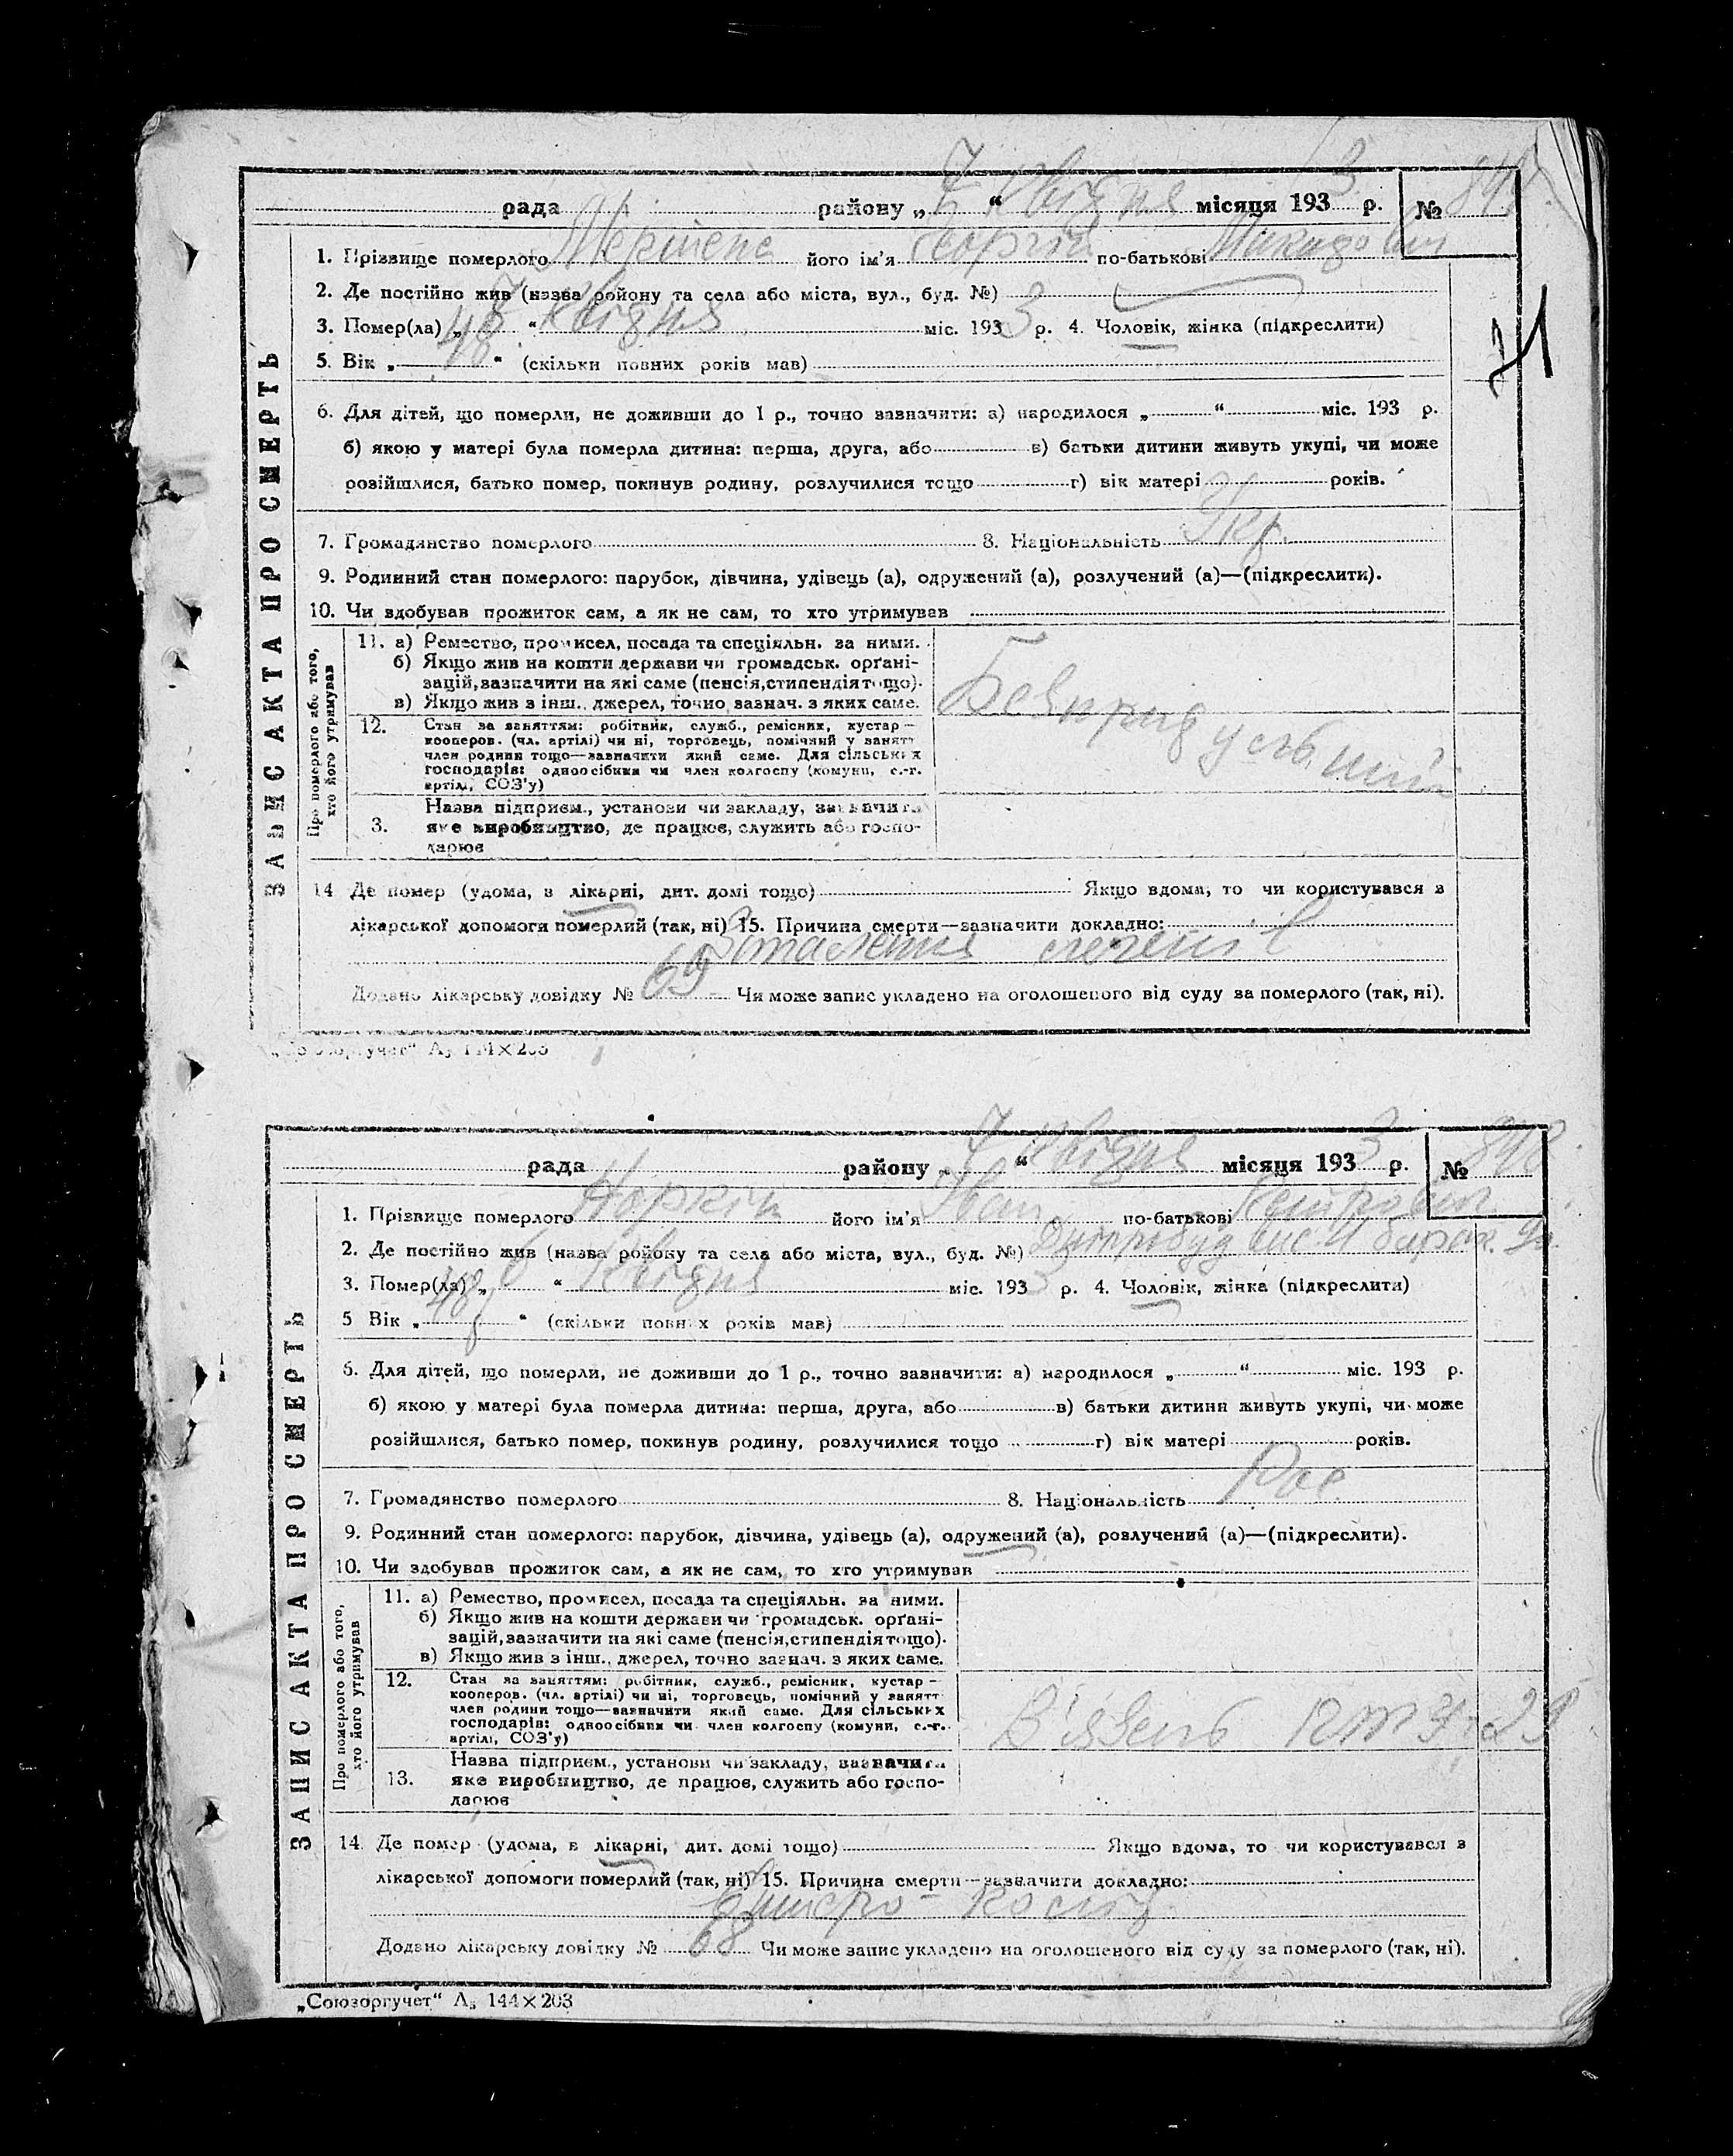 рада району „ 7 “ квітня місяця 193 3 р. №
1. Прізвище померлого його ім'я Георгій по-батькові
2. Де постійно жив (назва ройону та села або міста, вул., буд. №)
3. Помер(ла) „ 7 “ квітня міс. 193 3 р. 4. Чоловік, жінка (підкреслити)
5. Вік „ 48 “ (скільки повних років мав)
6. Для дітей, що померли, не доживши до 1 р., точно зазначити: а) народилося „ “ міс. 193 р.
б) якою у матері була померла дитина: перша, друга, або в) батьки дитини живуть укупі, чи може
розійшлися, батько помер, покинув родину, розлучилися тощо г) вік матері років.
7. Громадянство померлого 8. Національність Укр.
9. Родинний стан померлого: парубок, дівчина, удівець (а), одружений (а), розлучений (а)—(підкреслити).
10. Чи здобував прожиток сам, а як не сам, то хто утримував
ЗАПИС АКТА ПРО СМЕРТЬ
Про померлого або того, хто його утримував
11. а) Ремество, промисел, посада та спеціяльн. за ними.
б) Якщо жив на кошти держави чи громадськ. орґані-
зацій, зазначити на які саме (пенсія, стипендія тощо).
в) Якщо жив з інш., джерел, точно зазнач. з яких саме.
12. Стан за заняттям: робітник, служб., ремісник, кустар—
кооперов. (чл. артілі) чи ні, торговець, помічний у занятт
член родини тощо—зазначити який саме. Для сільських
господарів: одноосібник чи член колгоспу (комуни, с.-г.
артілі, СОЗ'у)
Назва підприєм., установи чи закладу, зазначити
3. яке виробництво, де працює, служить або госпо-
дарює
14 Де помер (удома, в лікарні, дит. домі тощо) Якщо вдома, то чи користувався з
лікарської допомоги померлий (так, ні) 15. Причина смерти—зазначити докладно:
Запалення легенів
Додано лікарську довідку № 69 Чи може запис укладено на оголошеного від суду за померлого (так, ні).
„Союзоргучет“ А₅ 144×203
рада району „ 7 “ квітня місяця 193 3 р. № 898
1. Прізвище померлого Норкін його ім'я Іван по-батькові Петрович
2. Де постійно жив (назва ройону та села або міста, вул., буд. №) Дніпробуд барак
3. Помер(ла) „ 6 “ квітня міс. 193 3 р. 4. Чоловік, жінка (підкреслити)
5 Вік „ 48 “ (скільки повних років мав)
6. Для дітей, що померли, не доживши до 1 р., точно зазначити: а) народилося „ “ міс. 193 р.
б) якою у матері була померла дитина: перша, друга, або в) батьки дитини живуть укупі, чи може
розійшлися, батько помер, покинув родину, розлучилися тощо г) вік матері років.
7. Громадянство померлого 8. Національність Рос.
9. Родинний стан померлого: парубок, дівчина, удівець (а), одружений (а), розлучений (а)—(підкреслити).
10. Чи здобував прожиток сам, а як не сам, то хто утримував
ЗАПИС АКТА ПРО СМЕРТЬ
Про померлого або того, хто його утримував
11. а) Ремество, промисел, посада та спеціяльн. за ними.
б) Якщо жив на кошти держави чи громадськ. орґані-
зацій, зазначити на які саме (пенсія, стипендія тощо).
в) Якщо жив з інш., джерел, точно зазнач. з яких саме.
12. Стан за заняттям: робітник, служб., ремісник, кустар—
кооперов. (чл. артілі) чи ні, торговець, помічний у занятт
член родини тощо—зазначити який саме. Для сільських
господарів: одноосібник чи член колгоспу (комуни, с.-г.
артілі, СОЗ'у)
Назва підприєм., установи чи закладу, зазначити
13. яке виробництво, де працює, служить або госпо-
дарює
14. Де помер (удома, в лікарні, дит. домі тощо) Якщо вдома, то чи користувався з
лікарської допомоги померлий (так, ні) 15. Причина смерти—зазначити докладно:
Ентеро-коліт
Додано лікарську довідку № 68 Чи може запис укладено на оголошеного від суду за померлого (так, ні).
„Союзоргучет“ А₅ 144×203